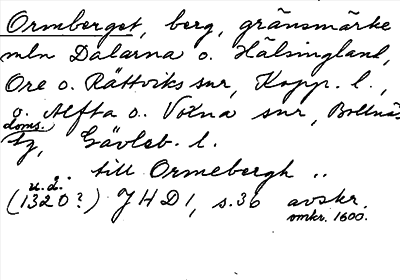 Ormberget, berg, gränsmärke
mln Dalarna o. Hälsingland,
Ore o. Rättviks snr, Kopp. l.,
o. Alfta o. Voxna snr, Bollnäs
doms.
tg, Gävleb. l.
.. till Ormebergh ..
u.d.
(1320?) JHD 1, s. 36 avskr.
omkr. 1600.